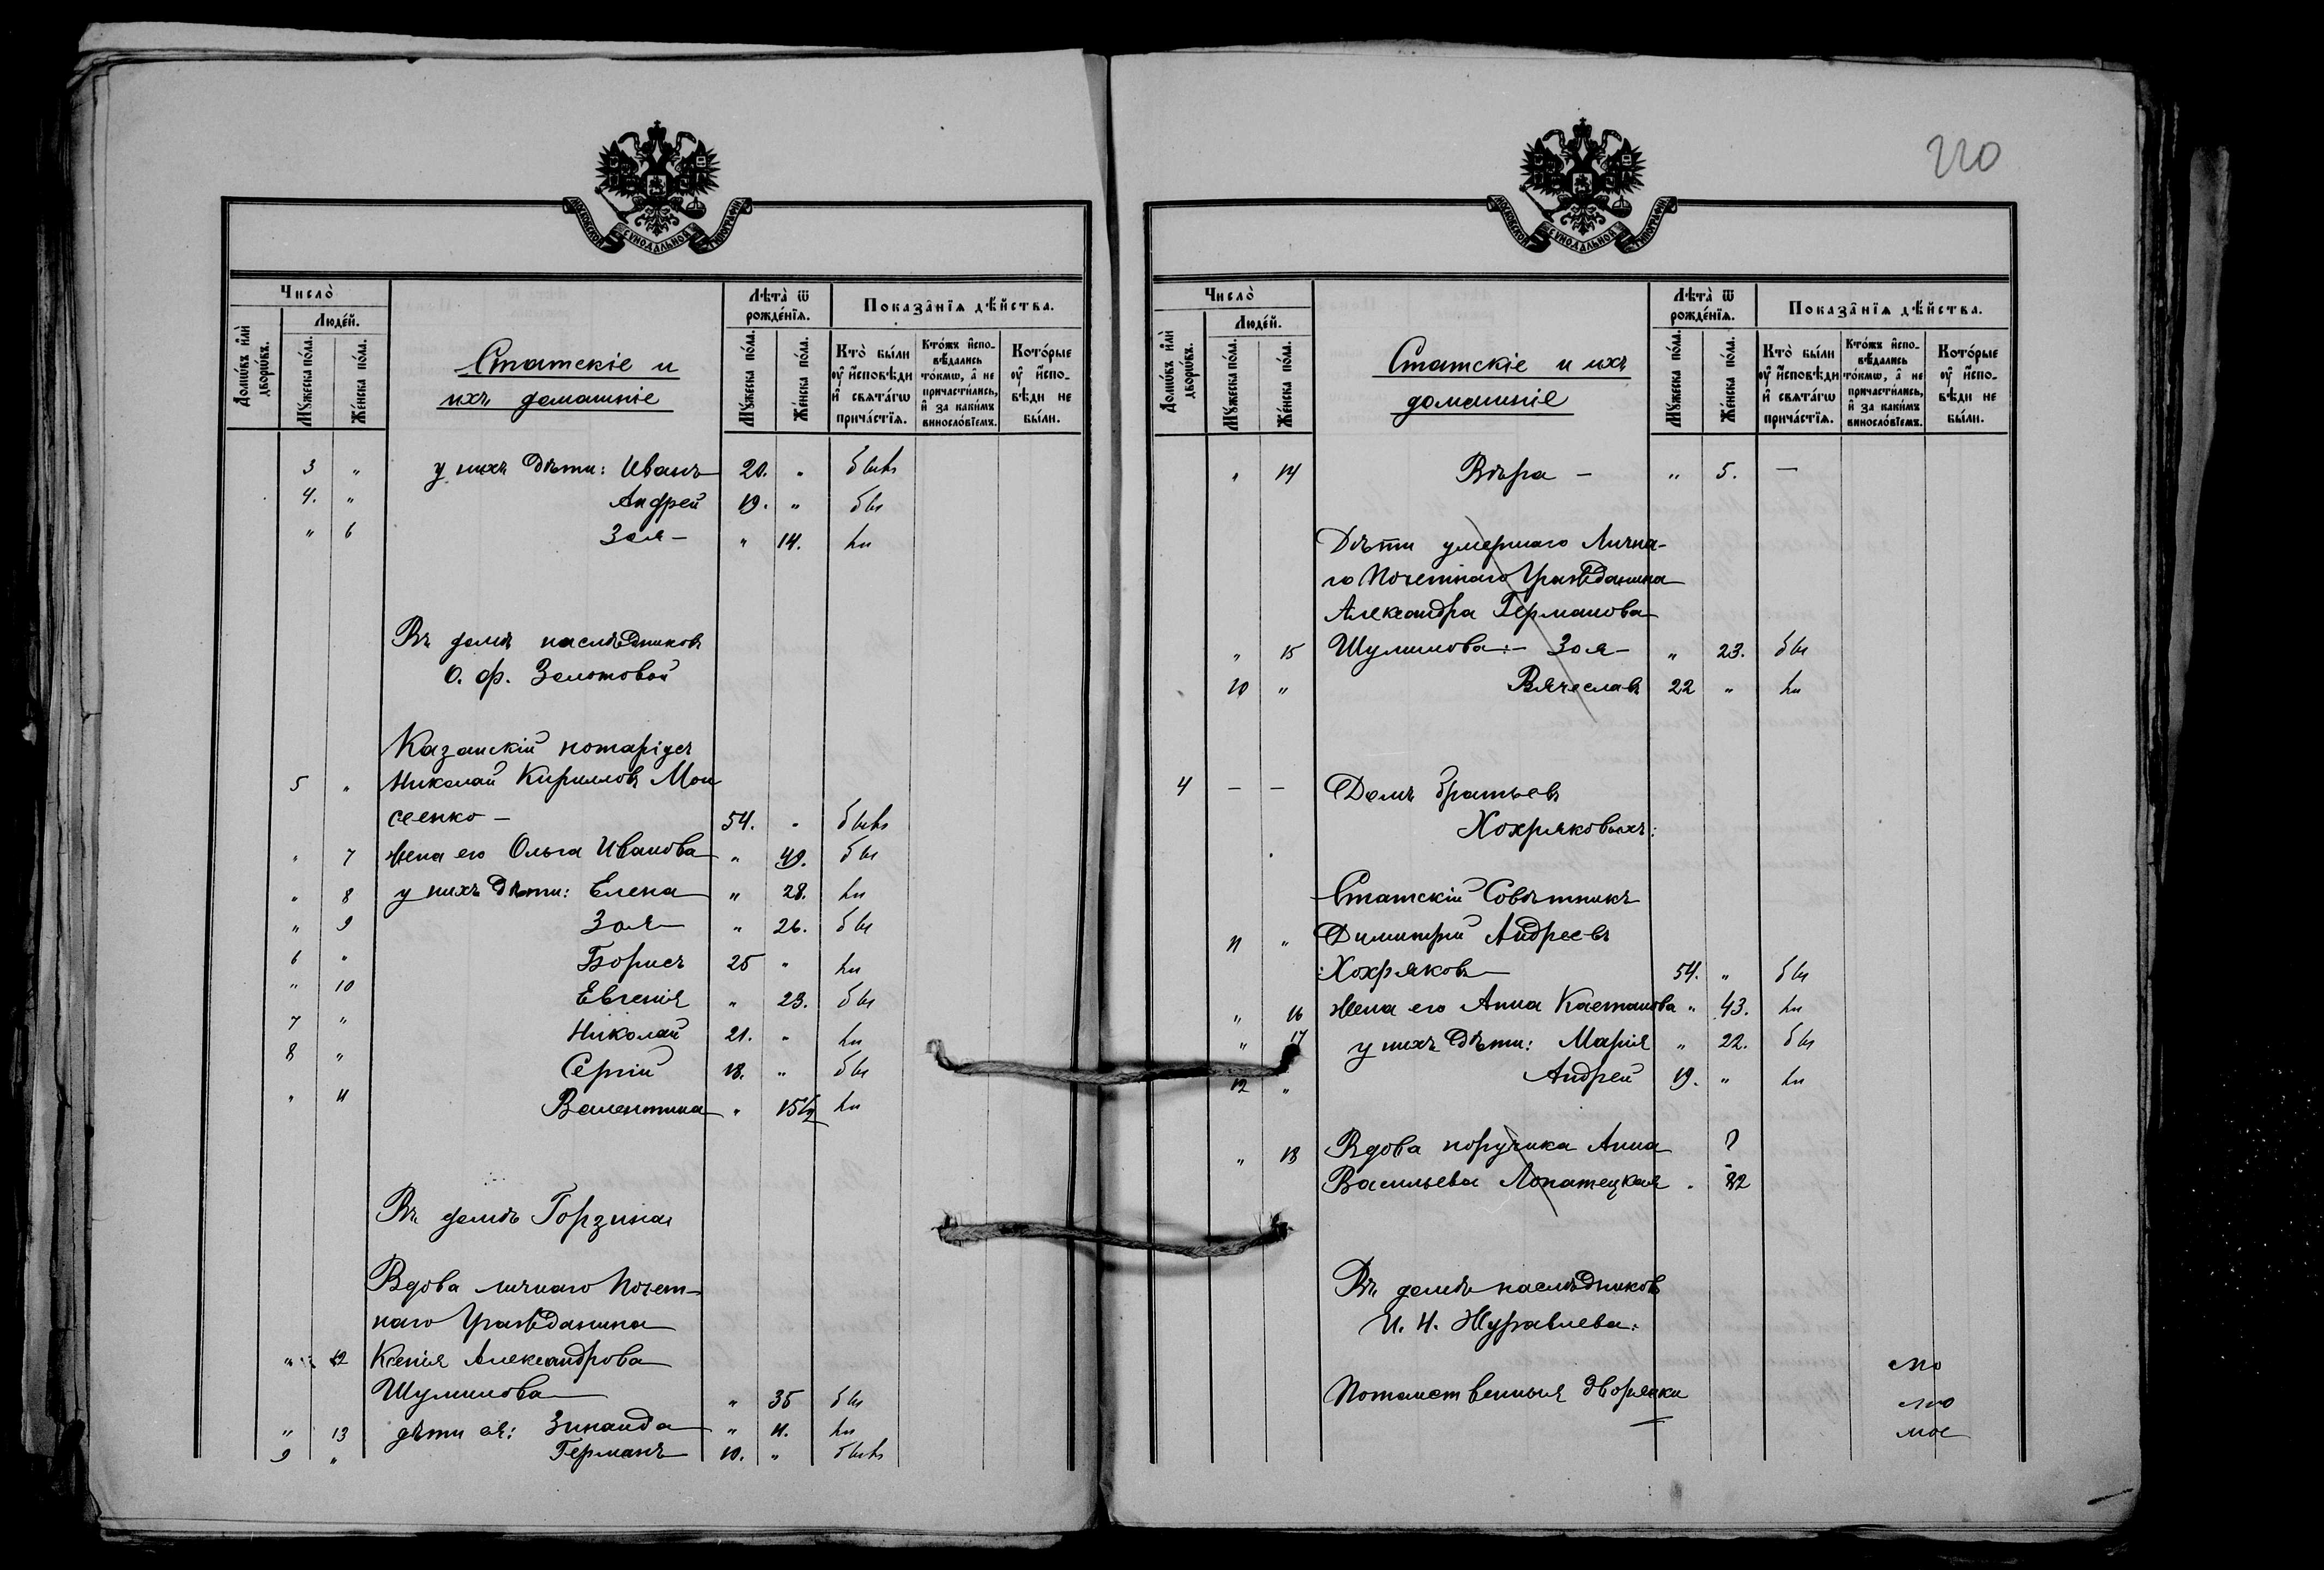 МОСКОВСКОЙ СѴНОДАЛЬНОЙ ТИПОГРАФІИ
Число̀
Люде́й.
Домѡ́въ и҆лѝ дворѡ́въ.
Мꙋ́жеска по́ла.
Же́нска по́ла.
Статскіе и
ихъ домашніе
Лѣта̀ ѿ рожде́нїѧ.
Мꙋ́жеска по́ла.
Же́нска по́ла.
Показа̑нїѧ дѣ́йства.
Кто̀ бы́ли оу҆ и҆сповѣ́ди и҆ свѧта́гѡ прича́стїѧ.
Кто́жъ и҆сповѣ́дались то́кмѡ, а҆ не причасти́лись, и҆ за каки́мъ винословїемъ.
Кото́рые оу҆ и҆сповѣ́ди не бы́ли.
3 " у нихъ дѣти: Иванъ 20. " былъ
4. " Андрей 19. " бы
" 6 Зоя - " 14. ли
Въ домѣ наслѣдниковъ
О. Ф. Золотовой
Казанскій нотаріусъ
5 " Николай Кирилловъ Мои
сеенко - 54. " былъ
" 7 жена его Ольга Иванова " 49. бы
" 8 у нихъ дѣти: Елена " 28. ли
" 9 Зоя " 26. бы
6 " Борисъ 25 " ли
" 10 Евгенія " 23. бы
7 " Николай 21. " ли
8 " Сергій 18. " бы
" 11 Валентина " 15½ ли
Въ домѣ Горзина
Вдова личнаго Почет-
наго Гражданина
" 12 Ксенія Александрова
Шулинова " 35 бы
" 13 дѣти ея: Зинаида " 11. ли
9 " Германъ 10. " былъ
220
МОСКОВСКОЙ СѴНОДАЛЬНОЙ ТИПОГРАФІИ
Число̀
Люде́й.
Домѡ́въ и҆лѝ дворѡ́въ.
Мꙋ́жеска по́ла.
Же́нска по́ла.
Статскіе и ихъ
домашніе
Лѣта̀ ѿ рожде́нїѧ.
Мꙋ́жеска по́ла.
Же́нска по́ла.
Показа̑нїѧ дѣ́йства.
Кто̀ бы́ли оу҆ и҆сповѣ́ди и҆ свѧта́гѡ прича́стїѧ.
Кто́жъ и҆сповѣ́дались то́кмѡ, а҆ не причасти́лись, и҆ за каки́мъ винословїемъ.
Кото́рые оу҆ и҆сповѣ́ди не бы́ли.
" 14 Вѣра - " 5. —
Дѣти умершаго Лична-
го Почетнаго Гражданина
Александра Германова
" 15 Шулинова:- Зоя - " 23. бы
10 " Вячеславъ 22 " ли
4 - - Домъ братьевъ
Хохряковыхъ:
Статскій Совѣтникъ
11 " Димитрій Андреевъ
Хохряковъ 54. " бы
" 16 жена его Анна Кастанова " 43. ли
" 17 у нихъ дѣти: Марія " 22. бы
12 " Андрей 19. " ли
" 18 Вдова поручика Анна ?
Васильева Лопатецкая " 82
Въ домѣ наслѣдниковъ
И. Н. Журавлева:
Потомственныя дворянки